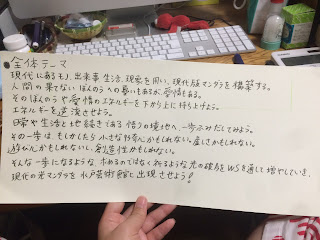 全体テーマ
現代にあるモノ、出来事、生活、現象を用い、現代版マンダラを構築する。
人間の果てない ぼんのうへの憂いもあるが、愛情もある。
そのぼんのうや愛情のエネルギーを下から上に持ち上げよう。
エネルギーを逆流させよう。
日常や生活と地続きである 悟りの境地へ、一歩ふみだしてみよう。
その一歩は、もしかしたら 小さな好奇心かもしれない。優しさかもしれない。
遊び心かもしれないし、創造性かもしれない。
そんな一歩になるような、求めるのではなく祈るような 光の破片を WSを通して増やしていき、
現代の光マンダラを 水戸芸術館に出現させよう!